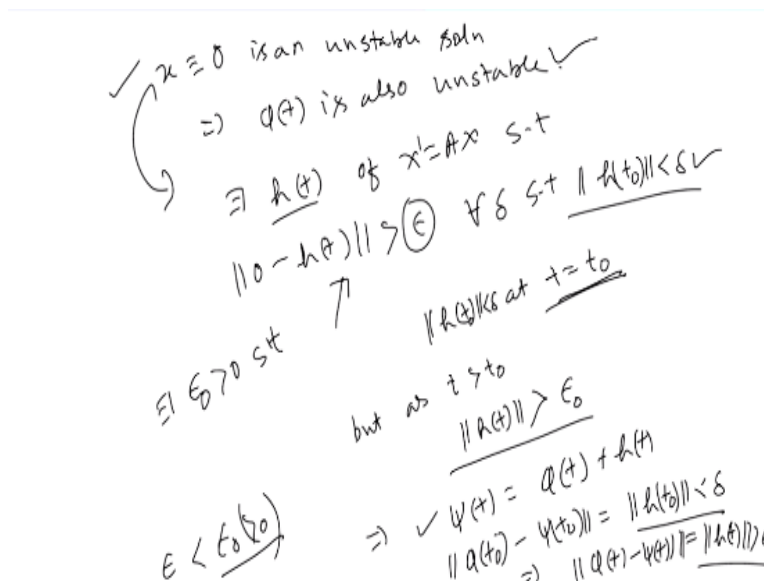 ✓ x ≡ 0 is an unstable soln
⇒ φ(t) is also unstable ✓
∃ h(t) of x' = Ax s.t
||0 - h(t)|| > ϵ ∀ δ s.t ||h(t₀)|| < δ ✓
||h(t)|| < δ at t = t₀
∃ ϵ₀ > 0 st
but as t > t₀
||h(t)|| > ϵ₀
ϵ < ϵ₀ (>0)
⇒ ✓ ψ(t) = φ(t) + h(t)
||φ(t₀) - ψ(t₀)|| = ||h(t₀)|| < δ
⇒ ||φ(t) - ψ(t)|| = ||h(t)|| >